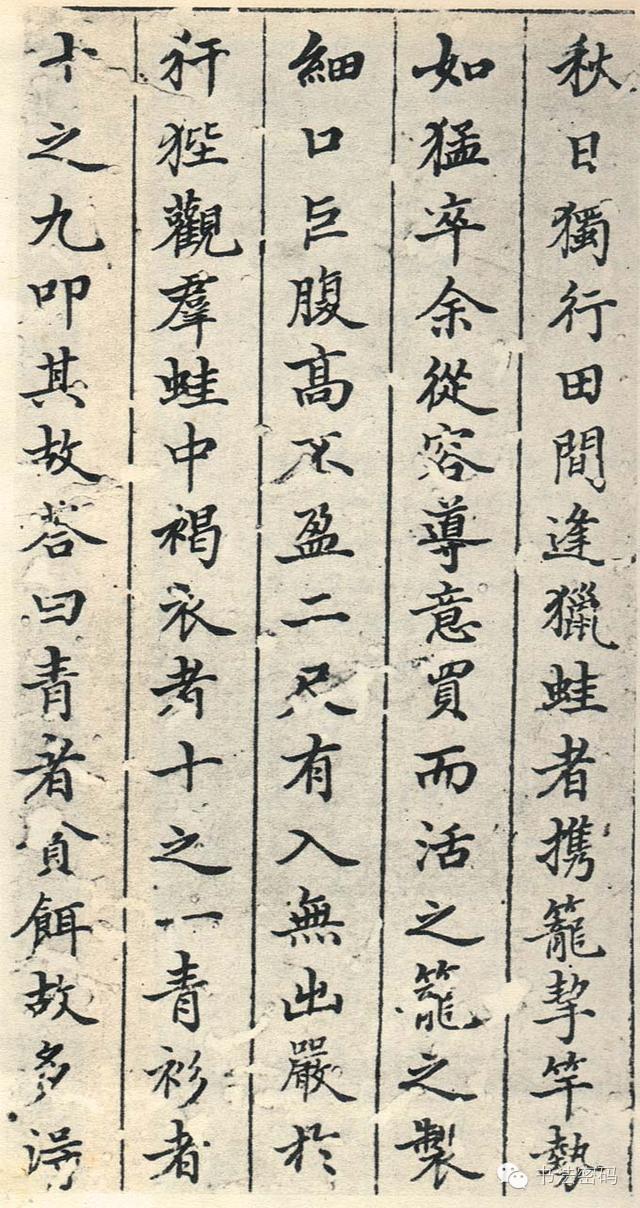 秋日獨行田間逢獵蛙者携籠挈竿勢
如猛卒余從容導意買而活之籠之製
細口巨腹高不盈二尺有入無出嚴於
犴狴觀羣蛙中褐衣者十之一青衫者
十之九叩其故荅曰青者貪餌故多得
书法密码